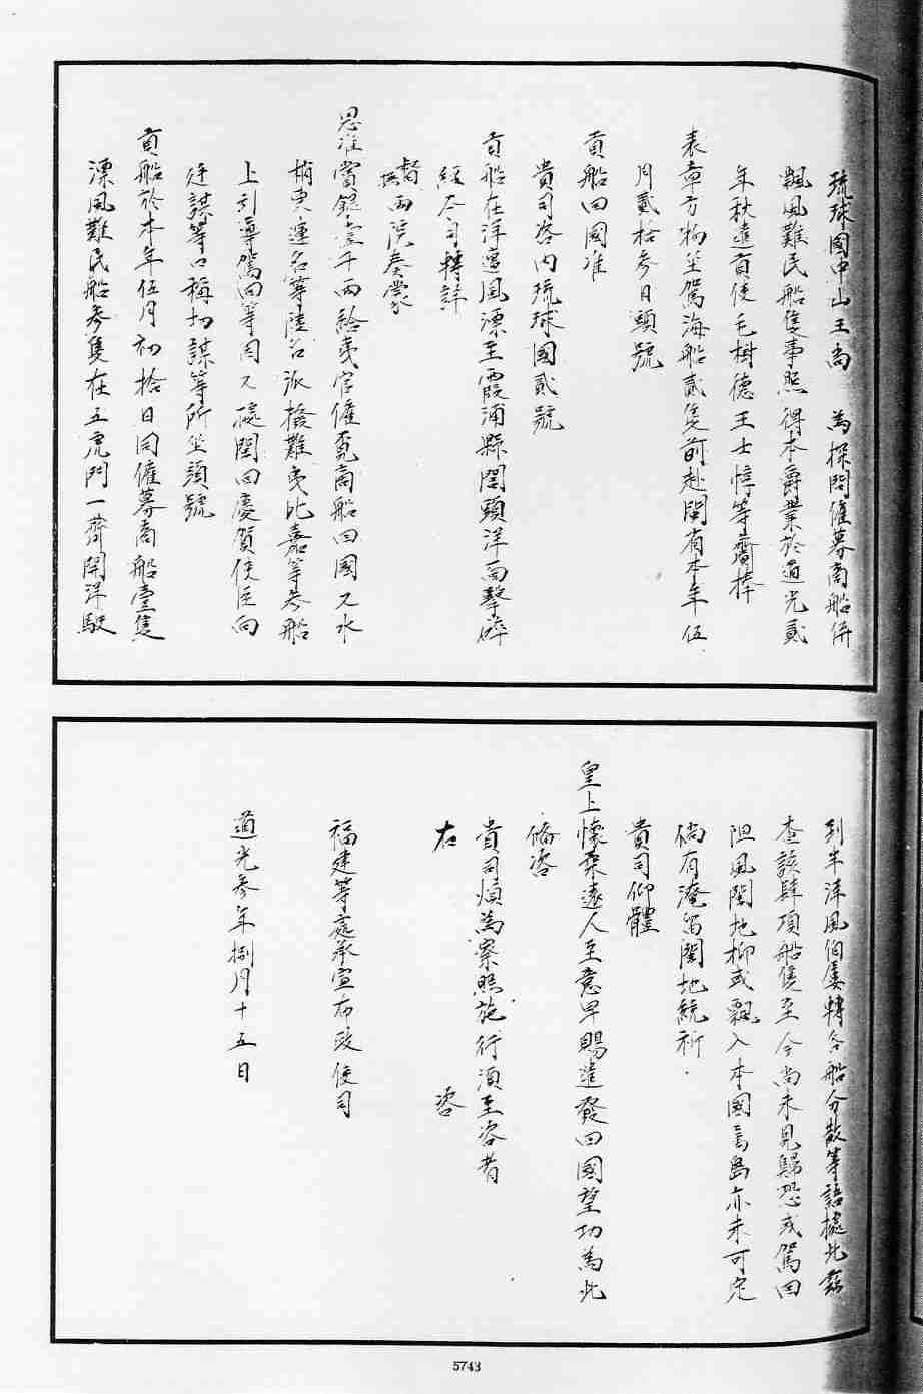 琉球國中山王尚　為探問催募商船併
飄風難民船隻事照得本爵業於道光貳
年秋遣貢使毛樹德王士惇等齎捧
表章方物坐駕海船貳隻前赴閩省本年伍
月貳拾參日頭號
貢船回國准
貴司咨內琉球國貳號
貢船在洋遭風漂至霞浦縣閭頭洋面擊碎
經本司轉詳
督撫兩院奏蒙
恩准賞銀壹千兩給夷官僱覓商船回國又水
梢更連名等陸名派撥難夷比嘉等參船
上引導駕回等因又據閩回慶賀使臣向
廷謀等口稱切謀等所坐頭號
貢船於本年伍月初拾日同僱募商船壹隻
漂風難民船參隻在五虎門一齊開洋駛
到半洋風伯屢轉各船分散等語據此茲
查該肆項船隻至今尚未見歸恐或駕回
阻風閩地抑或飄入本國島亦未可定
倘有淹留閩地統祈
貴司仰體
皇上懷柔遠人至意早賜遣發回國望切為此
備咨
貴司煩為案照施行須至咨者
右　咨
福建等處承宣布政使司
道光參年捌月十五日
5743